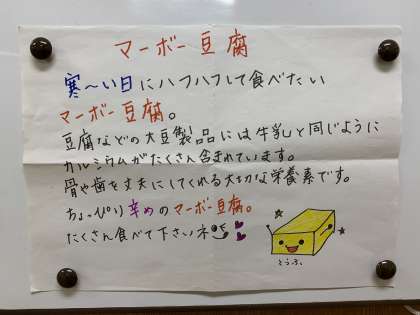 マーボー豆腐
寒〜い日にハフハフして食べたい
マーボー豆腐。
豆腐などの大豆製品には牛乳と同じように
カルシウムがたくさん含まれています。
骨や歯を丈夫にしてくれる大切な栄養素です。
ちょ〜ぴり辛めのマーボー豆腐。
たくさん食べて下さいネ
とうふ。